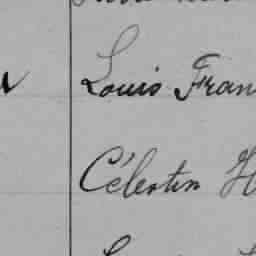 Louis Fran
Célestin H